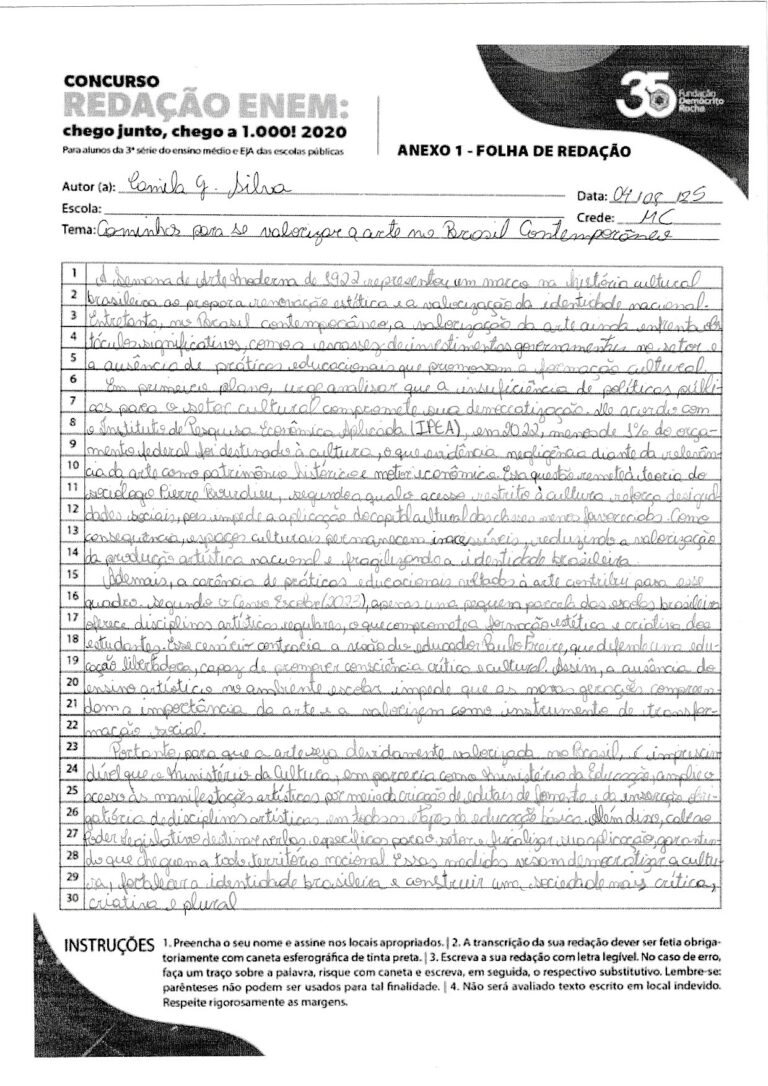 CONCURSO
REDAÇÃO ENEM:
chego junto, chego a 1.000! 2020
Para alunos da 3ª série do ensino médio e EJA das escolas públicas
35
Fundação
Demócrito
Rocha
ANEXO 1 - FOLHA DE REDAÇÃO
Autor (a): Camila G. Silva
Data: 04/08/25
Escola:
Crede: MC
Tema: Caminhos para se valorizar a arte no Brasil Contemporâneo
1 A Semana de Arte Moderna de 1922 representou um marco na história cultural
2 brasileira ao propora renovação estética e a valorização da identidade nacional.
3 Entretanto, no Brasil contemporâneo, a valorização da arte ainda enfrenta obs
4 táculos significativos, como a escassez de investimentos governamentais no setor e
5 a ausência de práticas educacionais que promovam a formação cultural.
6 Em primeiro plano, urge analisar que a insuficiência de políticas públi
7 cas para o setor cultural compromete sua democratização. De acordo com
8 o Instituto de Pesquisa Econômica Aplicada (IPEA), em 2022, menos de 1% do orça-
9 mento federal foi destinado à cultura, o que evidência negligência diante da relevân-
10 cia da arte como patrimônio histórico e motor econômico. Essa questão remete à teoria do
11 sociólogo Pierre Bourdieu, segundo a qual o acesso restrito à cultura reforça desigual
12 dades sociais, pois impede a aplicação do capital cultural das classes menos favorecidas. Como
13 consequência, espaços culturais permanecem inacessíveis, reduzindo a valorização
14 da produção artística nacional e fragilizando a identidade brasileira.
15 Ademais, a carência de práticas educacionais voltadas à arte contribu para esse
16 quadro. Segundo o Censo Escolar (2023), apenas uma pequena parcela das escolas brasileira
17 oferece disciplinas artísticas regulares, o que compromete a formação estética e criativa dos
18 estudantes. Esse cenário contraria a visão do educador Paulo Freire, que defende uma edu-
19 cação libertadora, capaz de promover consciência crítica e cultural. Assim, a ausência do
20 ensino artístico no ambiente escolar impede que as novas gerações compreen-
21 dam a importância da arte e a valorizem como instrumento de transfor-
22 mação social.
23 Portanto, para que a arte seja devidamente valorizada no Brasil, é imprescin
24 dível que o Ministério da Cultura, em parceria com o Ministério da Educação, amplie o
25 acesso às manifestações artísticas por meio da criação de editais de fomento e da inserção obri-
26 gatória de disciplinas artísticas em todas as etapas da educação básica. Além disso, cabe ao
27 Poder Legislativo destinar verbas específicas para o setor e fiscalizar sua aplicação, garantin-
28 do que cheguem a todo território nacional. Essas medidas visam democratizar a cultu-
29 ra, fortalecer a identidade brasileira e construir uma sociedade mais crítica,
30 criativa e plural
INSTRUÇÕES 1. Preencha o seu nome e assine nos locais apropriados. | 2. A transcrição da sua redação dever ser fetia obriga-
toriamente com caneta esferográfica de tinta preta. | 3. Escreva a sua redação com letra legível. No caso de erro,
faça um traço sobre a palavra, risque com caneta e escreva, em seguida, o respectivo substitutivo. Lembre-se:
parênteses não podem ser usados para tal finalidade. | 4. Não será avaliado texto escrito em local indevido.
Respeite rigorosamente as margens.